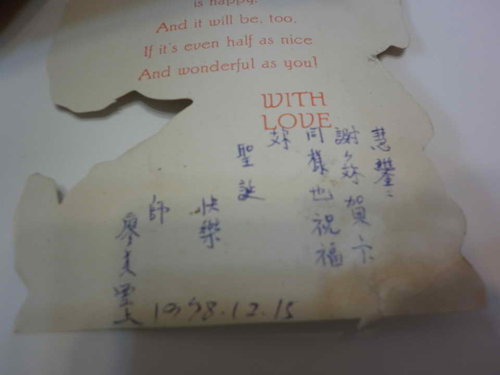 is happy,
And it will be, too,
If it's even half as nice
And wonderful as you!
WITH
LOVE
慧鑾:
謝々妳賀卡
同樣也祝福
妳
聖誕
快樂
師
廖美雲上
1998.12.15